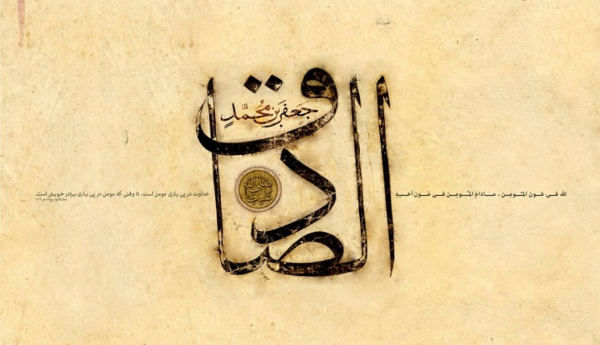 جعفر بن محمّدٍ
الصادق
الله فی عون المؤمِن ، مـادامَ المُـؤمِـن فـی عَـون أخـیهِ
خداوند در پی یاری مومن است، تا وقتی که مومن در پی یاری برادر خویش است.